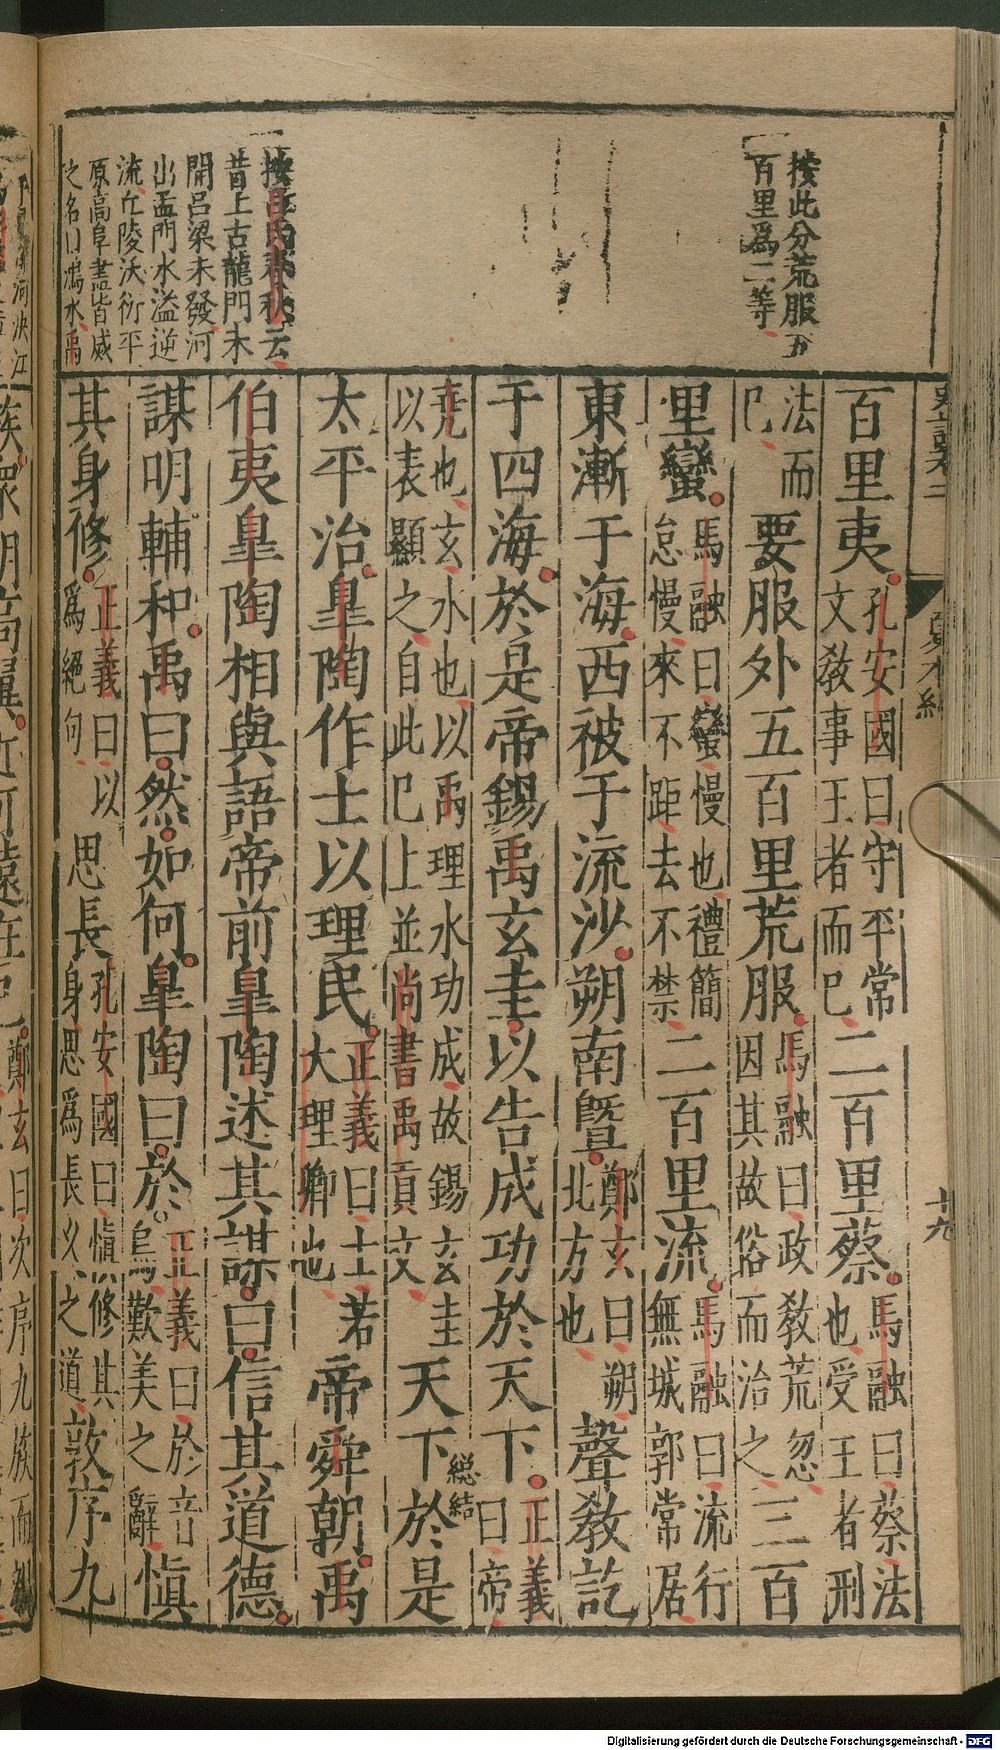 按此分荒服五
百里爲二等
按呂氏春秋云
昔上古龍門未
開呂梁未發河
出孟門水溢逆
流丘陵沃衍平
原高阜盡皆滅
之名曰鴻水禹
百里夷孔安國曰守平常文敎事王者而已二百里蔡馬融曰蔡法也受王者刑
法而已要服外五百里荒服馬融曰政敎荒忽因其故俗而治之三百
里蠻馬融曰蠻慢也禮簡怠慢來不距去不禁二百里流馬融曰流行無城郭常居
東漸于海西被于流沙朔南曁鄭玄曰朔北方也聲敎訖
于四海於是帝錫禹玄圭以告成功於天下正義曰帝
堯也玄水也以禹理水功成故錫玄圭以表顯之自此已上並尚書禹貢文天下總結於是
太平治皐陶作士以理民正義曰士若大理卿也帝舜朝禹
伯夷皐陶相與語帝前皐陶述其謀曰信其道德
謀明輔和禹曰然如何皐陶曰於正義曰於音烏歎美之辭愼
其身修正義曰以爲絕句思長孔安國曰愼修其身思爲長久之道敦序九
史記卷二
夏本紀
十九
Digitalisierung gefördert durch die Deutsche Forschungsgemeinschaft - DFG